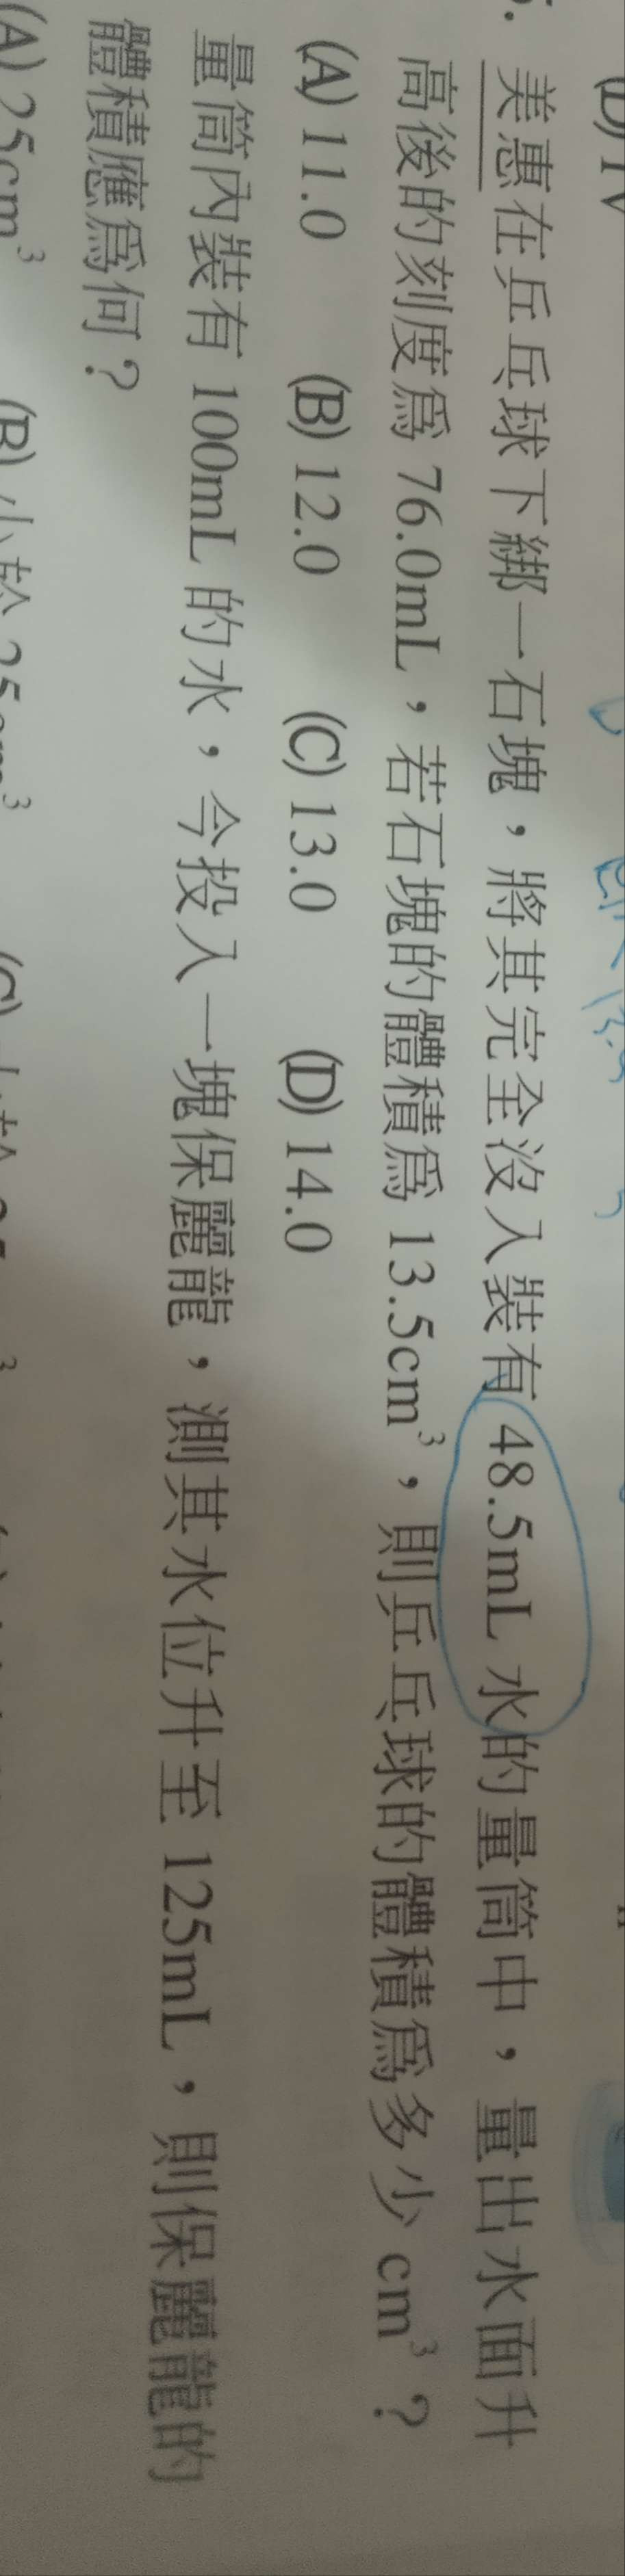 (D) IV
美惠在乒乓球下綁一石塊，將其完全沒入裝有 48.5mL 水的量筒中，量出水面升
高後的刻度爲 76.0mL，若石塊的體積爲 13.5cm³，則乒乓球的體積爲多少 cm³？
(A) 11.0 (B) 12.0 (C) 13.0 (D) 14.0
量筒內裝有 100mL 的水，今投入一塊保麗龍，測其水位升至 125mL，則保麗龍的
體積應爲何？
(A) 25cm³ (B) 小於 25cm³ (C)